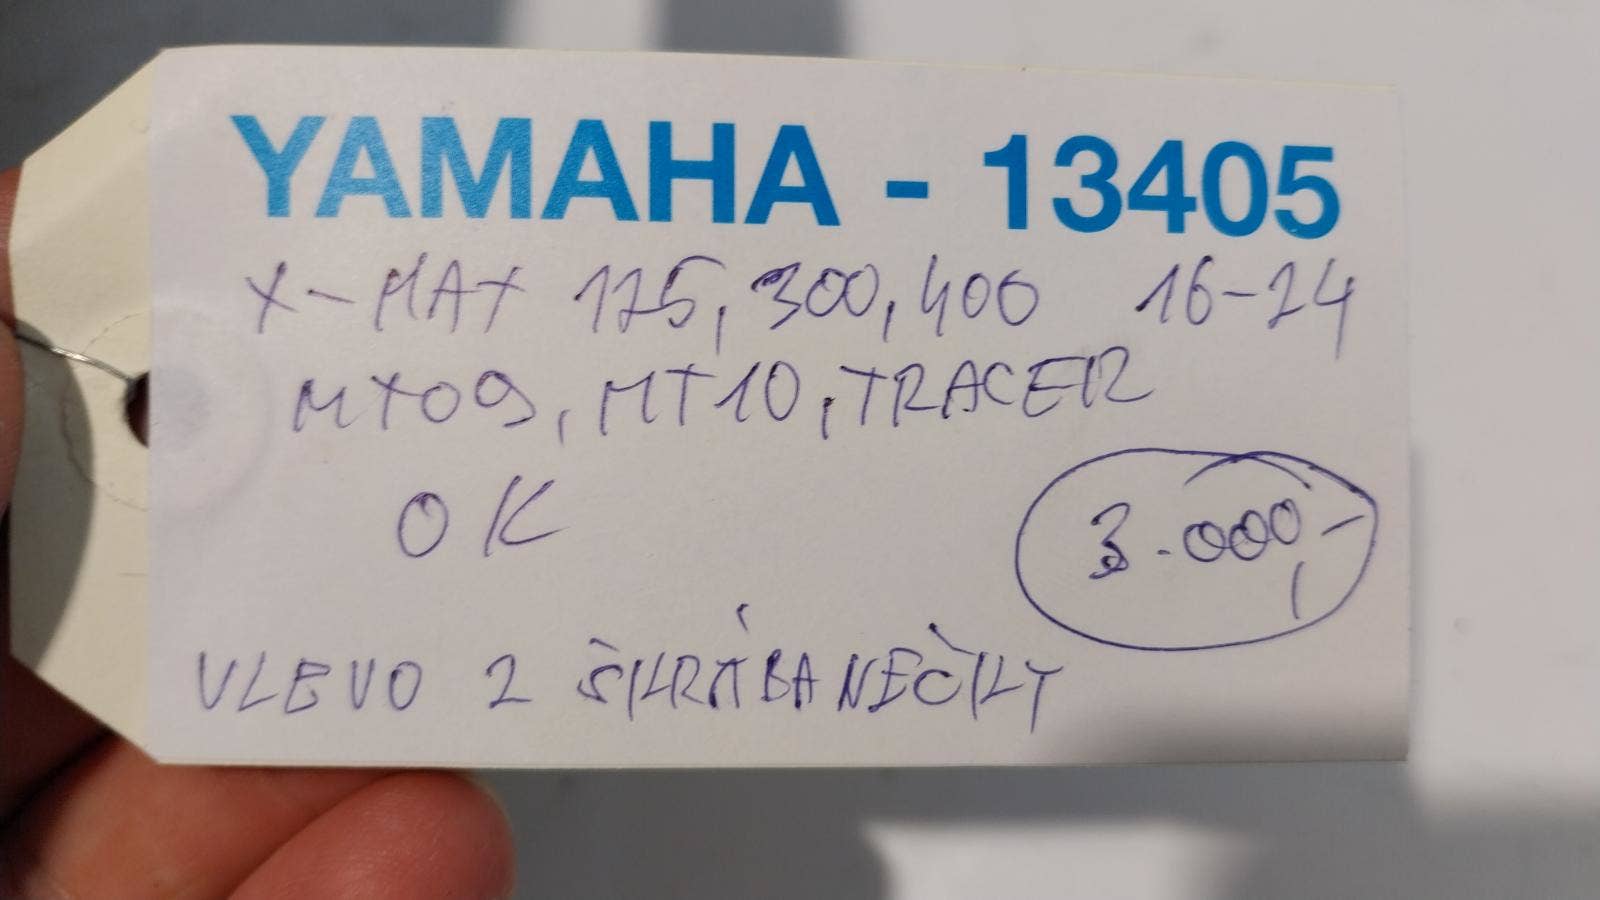 YAMAHA - 13405
X-MAX 125, 300, 400 16-24
MT09, MT10, TRACER
OK
3.000,-
VLEVO 2 ŠKRÁBANEČKY